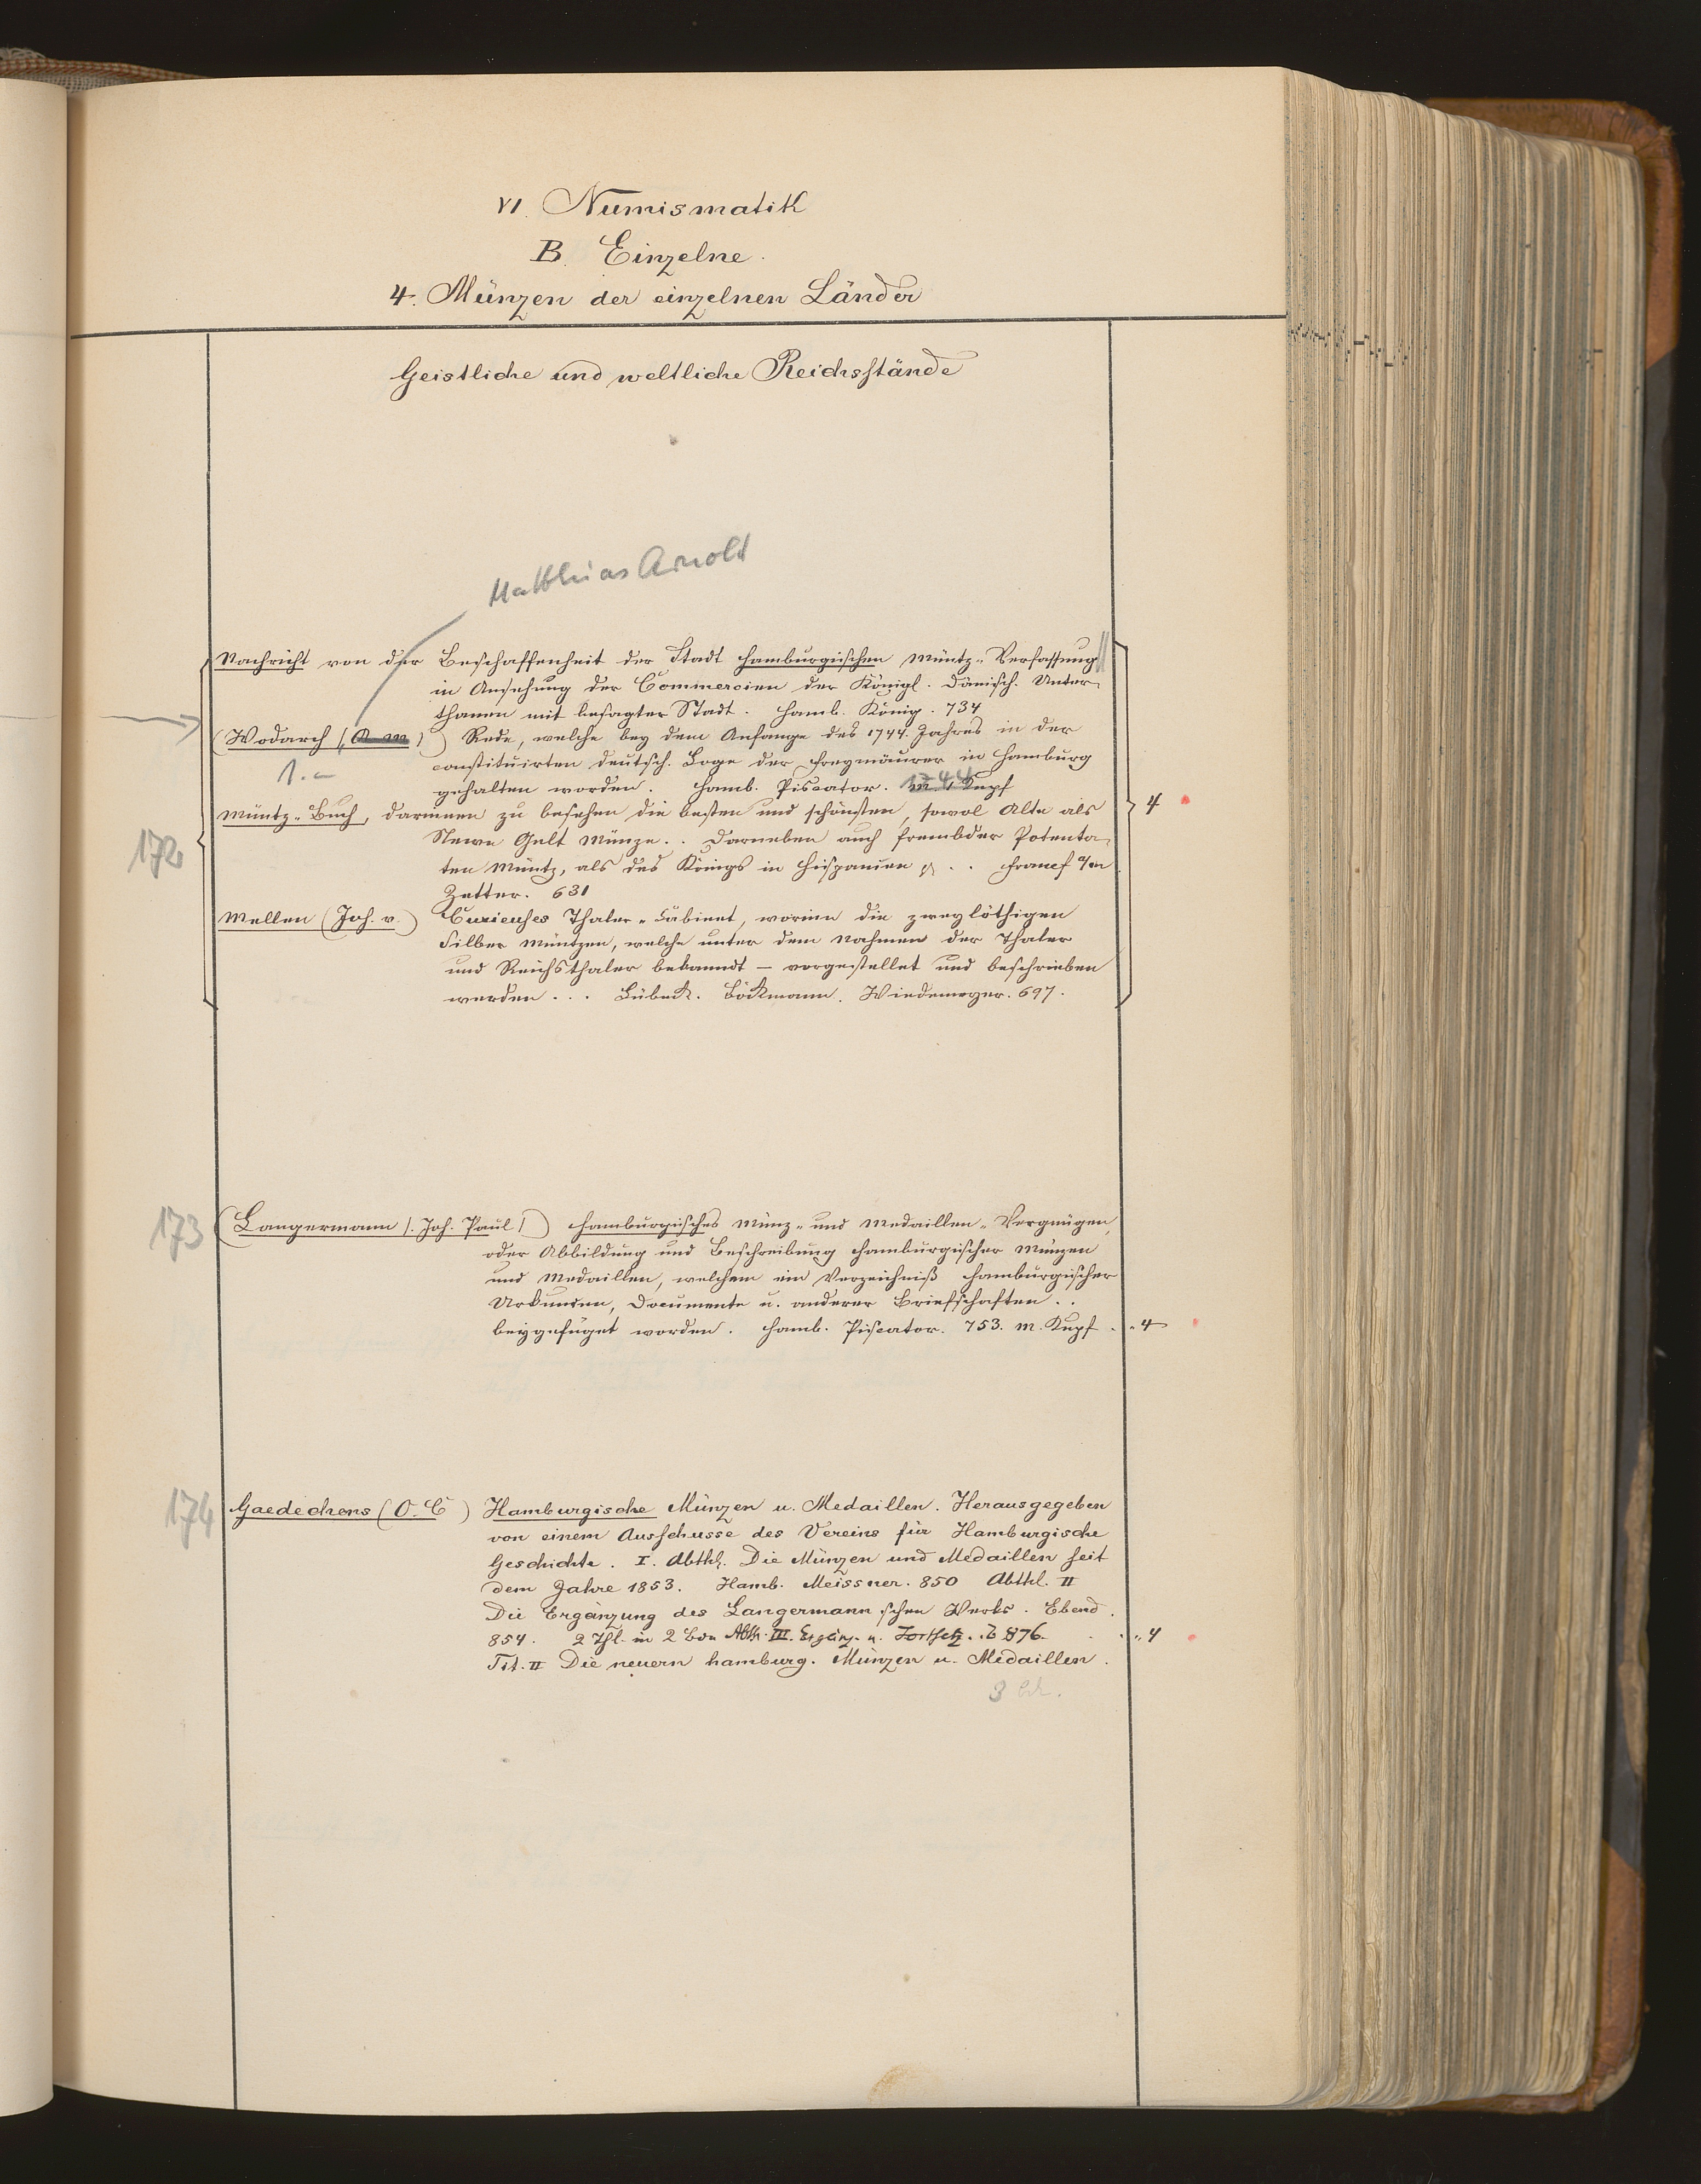 VI. Numismatik
B. Einzelne.
4. Münzen der einzelnen Länder
Geistliche und weltliche Reichsstände
Matthias Arnold
Nachricht von der Beschaffenheit der Stadt Hamburgischen Müntz-Verfassung
in Ansehung der Commercien der Königl. Dänisch. Unter-
thanen mit besagter Stadt. Hamb. König. 734
(Wodarch /A M/) Rede, welche bey dem Anfange des 1744. Jahres in der
1.-
constituirten deutsch. Loge der Freymäurer in Hamburg
gehalten worden. Hamb. Piscator. 1744 Kupf
172
Müntz-Buch, darinnen zu besehen die besten und schönsten, sowol Alte als
4
Newe Gelt Müntze.. Darneben auch frembder Potenta-
ten Müntz, als des Königs in Hispanien .. Francf a/m
Zetter. 631
Mellen (Joh. v.) Curieuses Thaler-Cabinet, worinn die zweylöthigen
Silber Müntzen, welche unter dem Nahmen der Thaler
und Reichsthaler bekanndt – vorgestellet und beschrieben
werden... Lübeck. Böckmann. Wiedemeyer. 697.
173
(Langermann /. Joh. Paul /) Hamburgisches Münz- und Medaillen-Vergnügen,
oder Abbildung und Beschreibung Hamburgischer Münzen
und Medaillen, welchem ein Verzeichniß Hamburgischer
Urkunden, Documente u. anderer Briefschaften..
beygefüget worden. Hamb. Piscator. 753. m. Kupf. 4
174
Gaedechens (O. C) Hamburgische Münzen u. Medaillen. Herausgegeben
von einem Ausschusse des Vereins für Hamburgische
Geschichte. I. Abthl. Die Münzen und Medaillen seit
dem Jahre 1853. Hamb. Meissner. 850 Abthl. II
Die Ergänzung des Langermann'schen Werks. Ebend.
854. 2 Thl. in 2 Bdn Abth. III. Ergänz. u. Fortsetz. 876. 4
Tit. II Die neuern hamburg. Münzen u. Medaillen.